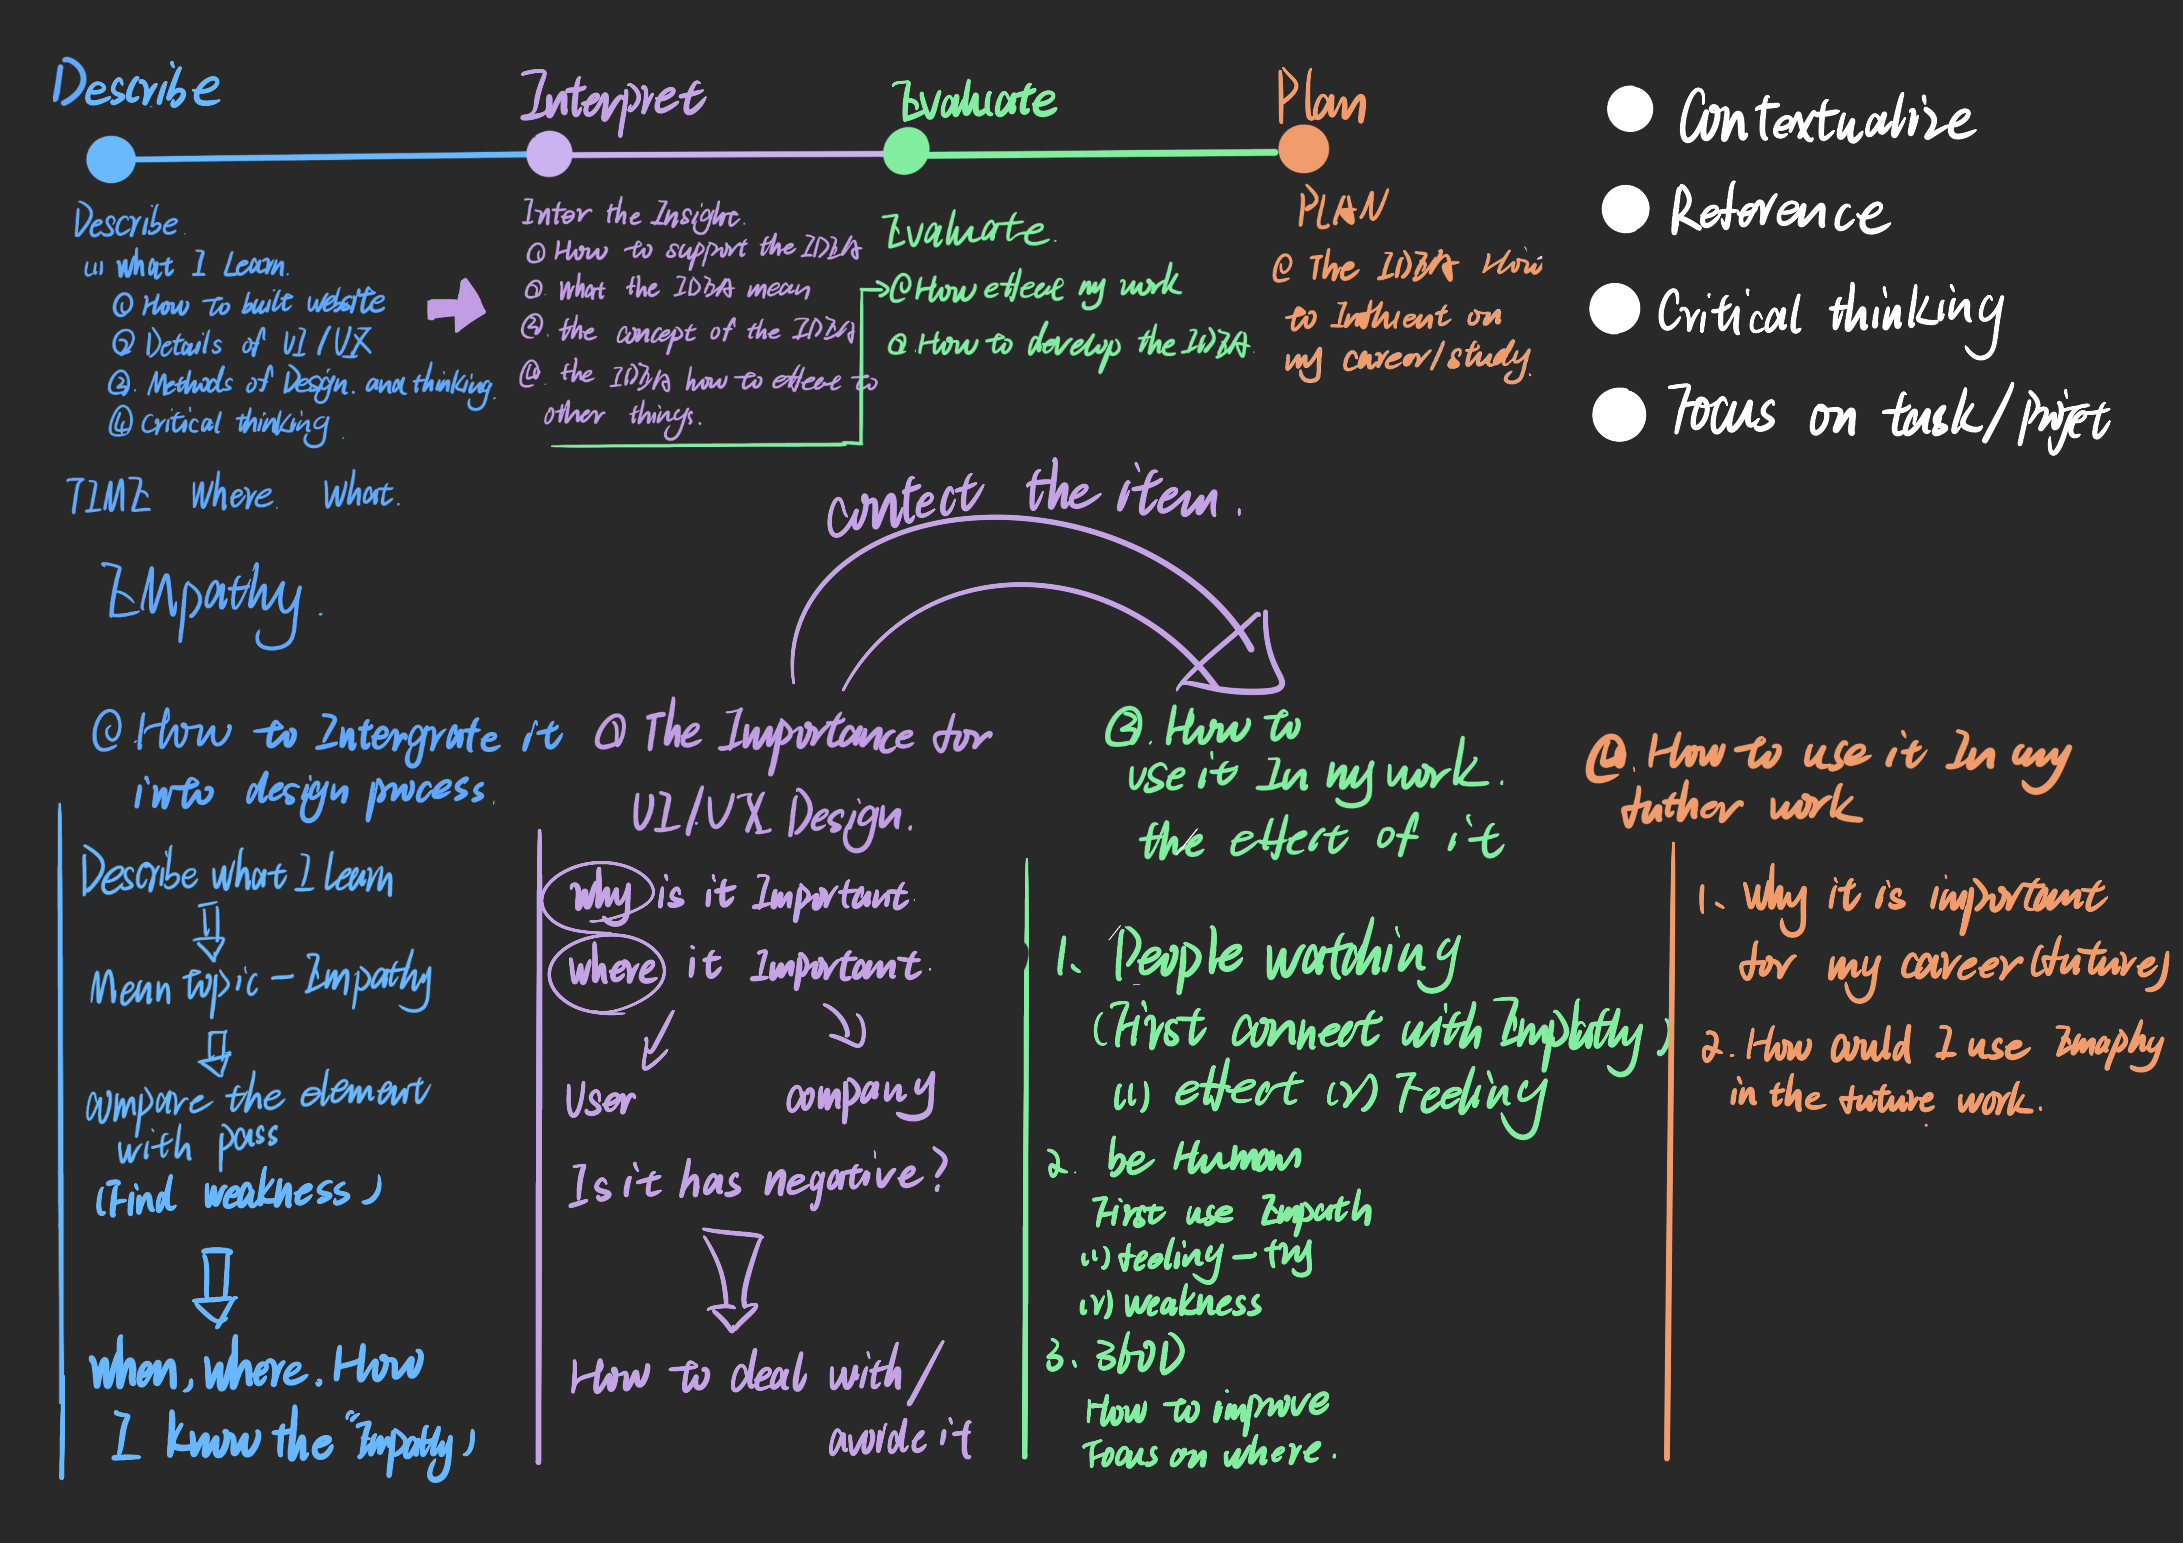 Describe
Interpret
Evaluate
Plan
Contextualize
Reference
Critical thinking
Focus on task/projet
Describe.
(1) what I Learn.
① How to built website
② Details of UI/UX
③. Methods of Design. and thinking.
④ Critical thinking.
TIME Where. What.
Inter the Insight.
① How to support the IDEA
②. what the IDEA mean
③. the concept of the IDEA
④. the IDEA how to effect to
other things.
Evaluate.
① How effect my work
②. How to develop the IDEA.
PLAN
① The IDEA How
to Influent on
my career/study.
contect the item.
EMpathy.
② How to Intergrate it
into design process.
Describe what I learn
Mean topic - Empathy
compare the element
with pass
(Find weakness)
when, where. How
I know the "Empathy)
① The Importance for
UI/UX Design.
why is it Important.
where it Important.
User
company
Is it has negative?
How to deal with/
avoide it
③. How to
use it In my work.
the effect of it
1. People watching
(First connect with Empathy)
(1) effect (2) Feeling
2. be Human
First use Empath
(1) feeling - try
(2) weakness
3. 360D
How to improve
Focus on where.
④. How to use it In my
futher work
1. Why it is important
for my career (future)
2. How could I use Emaphy
in the future work.